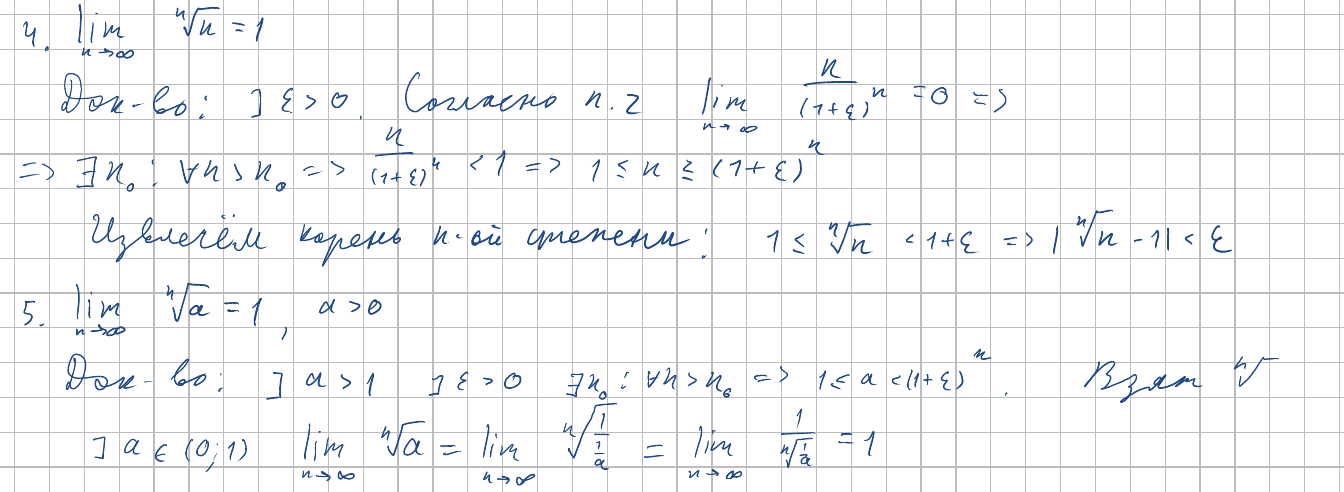 4. lim n→∞ ⁿ√n = 1
Док-во: ] ε > 0. Согласно п. 2 lim n→∞ n/(1+ε)ⁿ = 0 =>
=> ∃n₀: ∀n > n₀ => n/(1+ε)ⁿ < 1 => 1 ≤ n ≤ (1+ε)ⁿ
Извлечём корень n-ой степени: 1 ≤ ⁿ√n < 1+ε => |ⁿ√n - 1| < ε
5. lim n→∞ ⁿ√a = 1, a > 0
Док-во: ] a > 1 ] ε > 0 ∃n₀: ∀n > n₀ => 1 ≤ a < (1+ε)ⁿ. Взят ⁿ√
] a ∈ (0; 1) lim n→∞ ⁿ√a = lim n→∞ ⁿ√(1/(1/a)) = lim n→∞ 1/ⁿ√(1/a) = 1